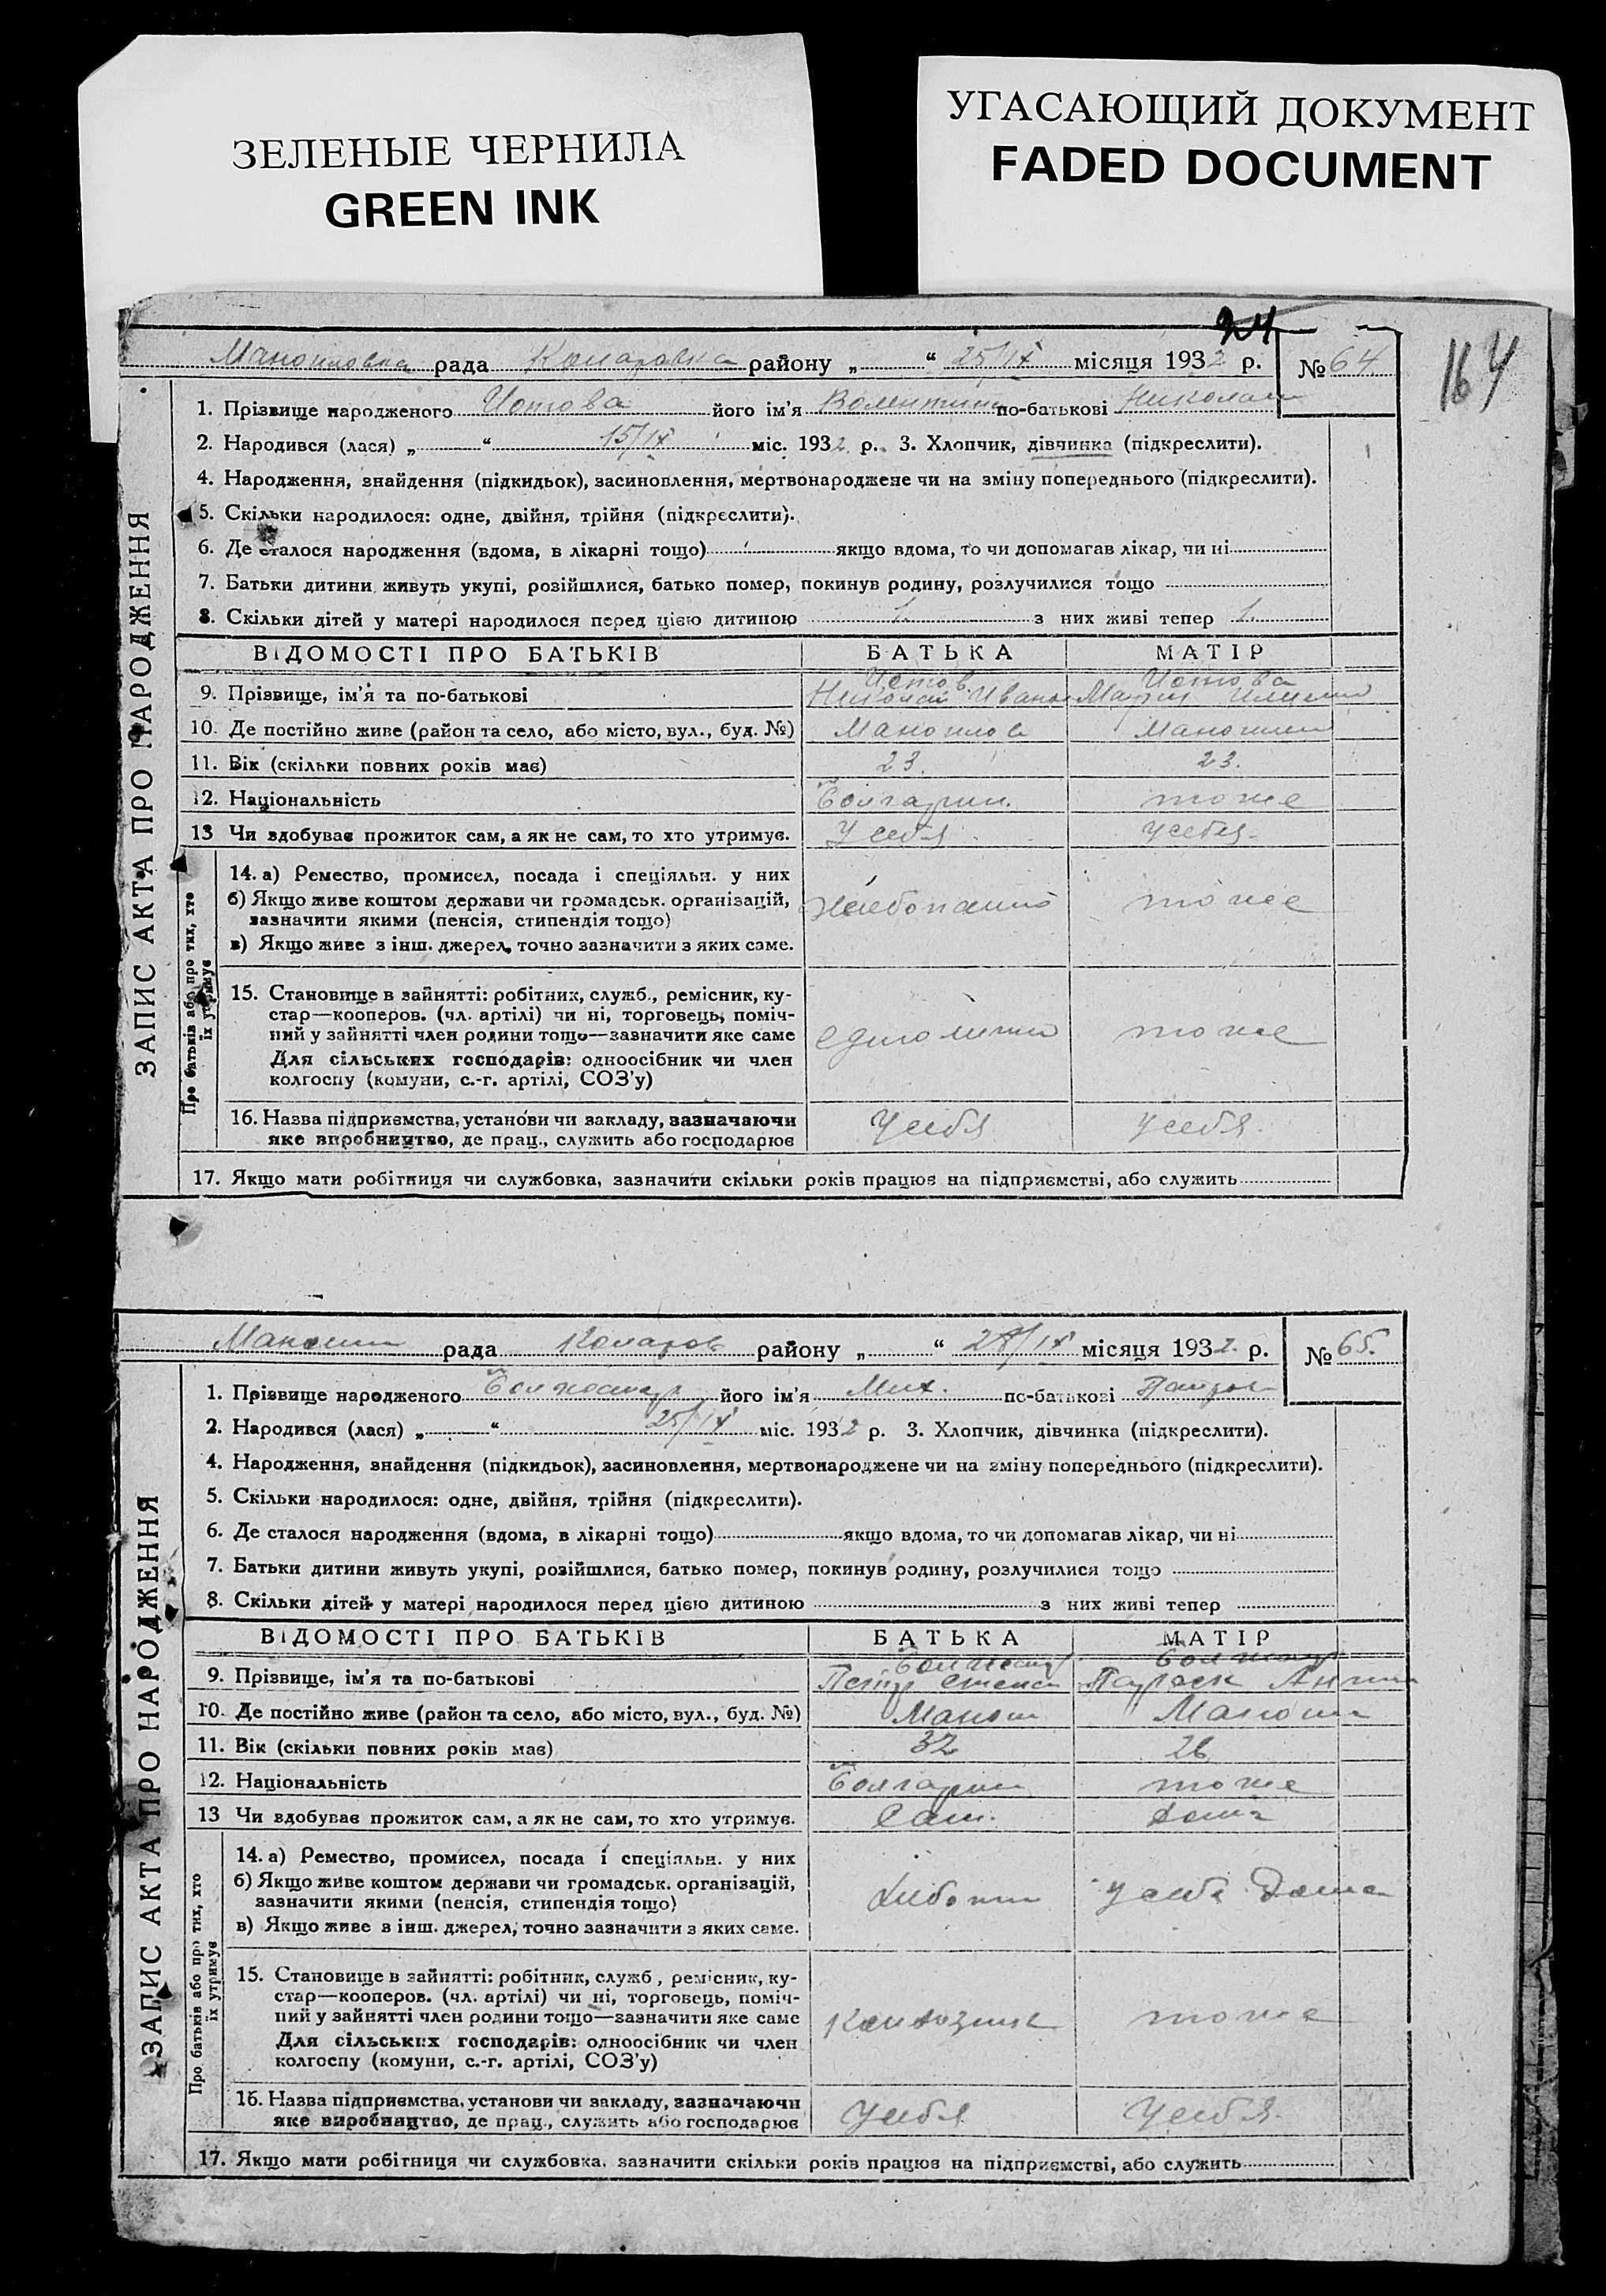 ЗЕЛЕНЫЕ ЧЕРНИЛА
GREEN INK
УГАСАЮЩИЙ ДОКУМЕНТ
FADED DOCUMENT
24
164
рада района „ “ 25/IX місяця 1932 р. № 64
1. Прізвище народженого його ім'я по-батькові
2. Народився (лася) „ “ 15/IX міс. 1932 р. 3. Хлопчик, дівчинка (підкреслити).
4. Народження, знайдення (підкидьок), засиновлення, мертвонароджене чи на зміну попереднього (підкреслити).
5. Скільки народилося: одне, двійня, трійня (підкреслити).
6. Де сталося народження (вдома, в лікарні тощо) якщо вдома, то чи допомагав лікар, чи ні
7. Батьки дитини живуть укупі, розійшлися, батько помер, покинув родину, розлучилися тощо
8. Скільки дітей у матері народилося перед цією дитиною 1. з них живі тепер 1.
ЗАПИС АКТА ПРО НАРОДЖЕННЯ
ВІДОМОСТІ ПРО БАТЬКІВ БАТЬКА МАТІР
9. Прізвище, ім'я та по-батькові
10. Де постійно живе (район та село, або місто, вул., буд. №)
11. Вік (скільки повних років має) 23. 23.
12. Національність тоже
13 Чи здобуває прожиток сам, а як не сам, то хто утримує. У себя У себя
Про батьків або про тих, хто їх утримує
14. а) Ремество, промисел, посада і спеціяльн. у них
б) Якщо живе коштом держави чи громадськ. організацій,
зазначити якими (пенсія, стипендія тощо) тоже
в) Якщо живе з інш. джерел, точно зазначити з яких саме.
15. Становище в зайнятті: робітник, служб., ремісник, ку-
стар—кооперов. (чл. артілі) чи ні, торговець, поміч-
ний у зайнятті член родини тощо—зазначити яке саме тоже
Для сільських господарів: одноосібник чи член
колгоспу (комуни, с.-г. артілі, СОЗ'у)
16. Назва підприємства, установи чи закладу, зазначаючи
яке виробництво, де прац., служить або господарює У себя У себя
17. Якщо мати робітниця чи службовка, зазначити скільки років працює на підприємстві, або служить
рада району „ “ 28/IX місяця 1932 р. № 65.
1. Прізвище народженого його ім'я Мих. по-батькові
2. Народився (лася) „ “ 25/IX міс. 1932 р. 3. Хлопчик, дівчинка (підкреслити).
4. Народження, знайдення (підкидьок), засиновлення, мертвонароджене чи на зміну попереднього (підкреслити).
5. Скільки народилося: одне, двійня, трійня (підкреслити).
6. Де сталося народження (вдома, в лікарні тощо) якщо вдома, то чи допомагав лікар, чи ні
7. Батьки дитини живуть укупі, розійшлися, батько помер, покинув родину, розлучилися тощо
8. Скільки дітей у матері народилося перед цією дитиною з них живі тепер
ЗАПИС АКТА ПРО НАРОДЖЕННЯ
ВІДОМОСТІ ПРО БАТЬКІВ БАТЬКА МАТІР
9. Прізвище, ім'я та по-батькові
10. Де постійно живе (район та село, або місто, вул., буд. №)
11. Вік (скільки повних років має) 32 26
12. Національність тоже
13 Чи здобуває прожиток сам, а як не сам, то хто утримує.
Про батьків або про тих, хто їх утримує
14. а) Ремество, промисел, посада і спеціяльн. у них
б) Якщо живе коштом держави чи громадськ. організацій,
зазначити якими (пенсія, стипендія тощо)
в) Якщо живе з інш. джерел, точно зазначити з яких саме.
15. Становище в зайнятті: робітник, служб., ремісник, ку-
стар—кооперов. (чл. артілі) чи ні, торговець, поміч-
ний у зайнятті член родини тощо—зазначити яке саме тоже
Для сільських господарів: одноосібник чи член
колгоспу (комуни, с.-г. артілі, СОЗ'у)
16. Назва підприємства, установи чи закладу, зазначаючи
яке виробництво, де прац., служить або господарює У себя У себя
17. Якщо мати робітниця чи службовка, зазначити скільки років працює на підприємстві, або служить